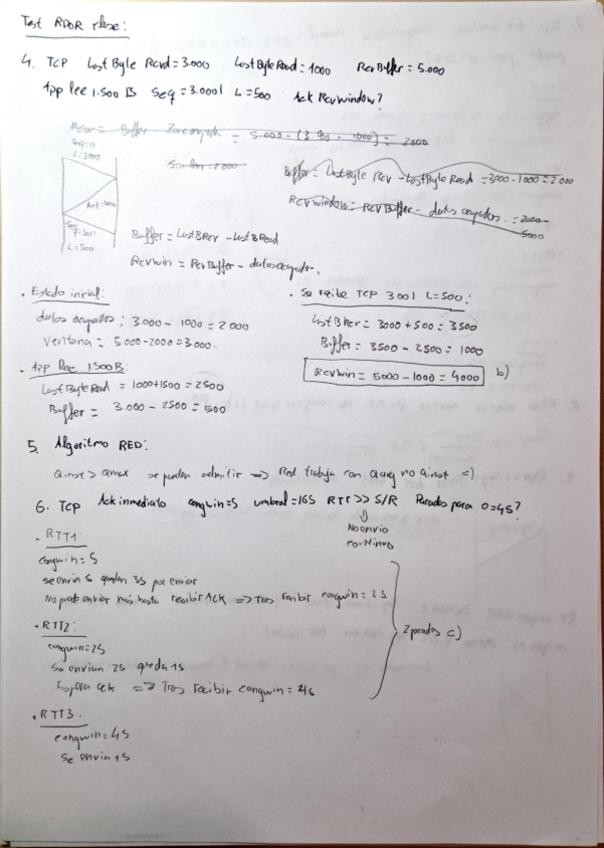 Test RPDR clase:
4. TCP Last Byte Rcvd = 3.000 Last Byte Read = 1000 Rcv Buffer = 5.000
App lee 1.500 B Seq = 3.0001 L = 500 Ack Rcvwindow?
Rcvw = Buffer - Zona ocupada = 5.000 - (3.000 - 1000) = 2000
Seq=0
L=3000
Buffer = LastByte Rcv - LastByteRead = 3000 - 1000 = 2.000
Rcvwindow = RcvBuffer - datos ocupados = 2000 -
5000
L=500
Buffer = LastBRcv - LastBRead
Rcvwin = RcvBuffer - datos ocupados.
· Estado inicial:
datos ocupados: 3.000 - 1000 = 2000
Ventana = 5.000 - 2000 = 3.000
· App lee 1500B:
LastByteRead = 1000 + 1500 = 2500
Buffer = 3.000 - 2500 = 500
· Se recibe TCP 3001 L=500:
LastBRcv = 3000 + 500 = 3500
Buffer = 3500 - 2500 = 1000
Rcvwin = 5000 - 1000 = 4000 b)
5. Algoritmo RED:
Qinst > Qmax se pueden admitir => Red trabaja con Qavg no Qinst c)
6. TCP Ack inmediato congwin=S umbral=16S RTT >> S/R Paradas para O=4S?
No envio
continuo
· RTT1:
congwin = S
se envia S quedan 3S por enviar
No puedo enviar mas hasta recibir ACK => Tras recibir congwin = 2S
· RTT2:
congwin=2S
Se envian 2S queda 1S
Espera ack => Tras recibir congwin = 4S
2 paradas c)
· RTT3.
congwin = 4S
Se envia 1S